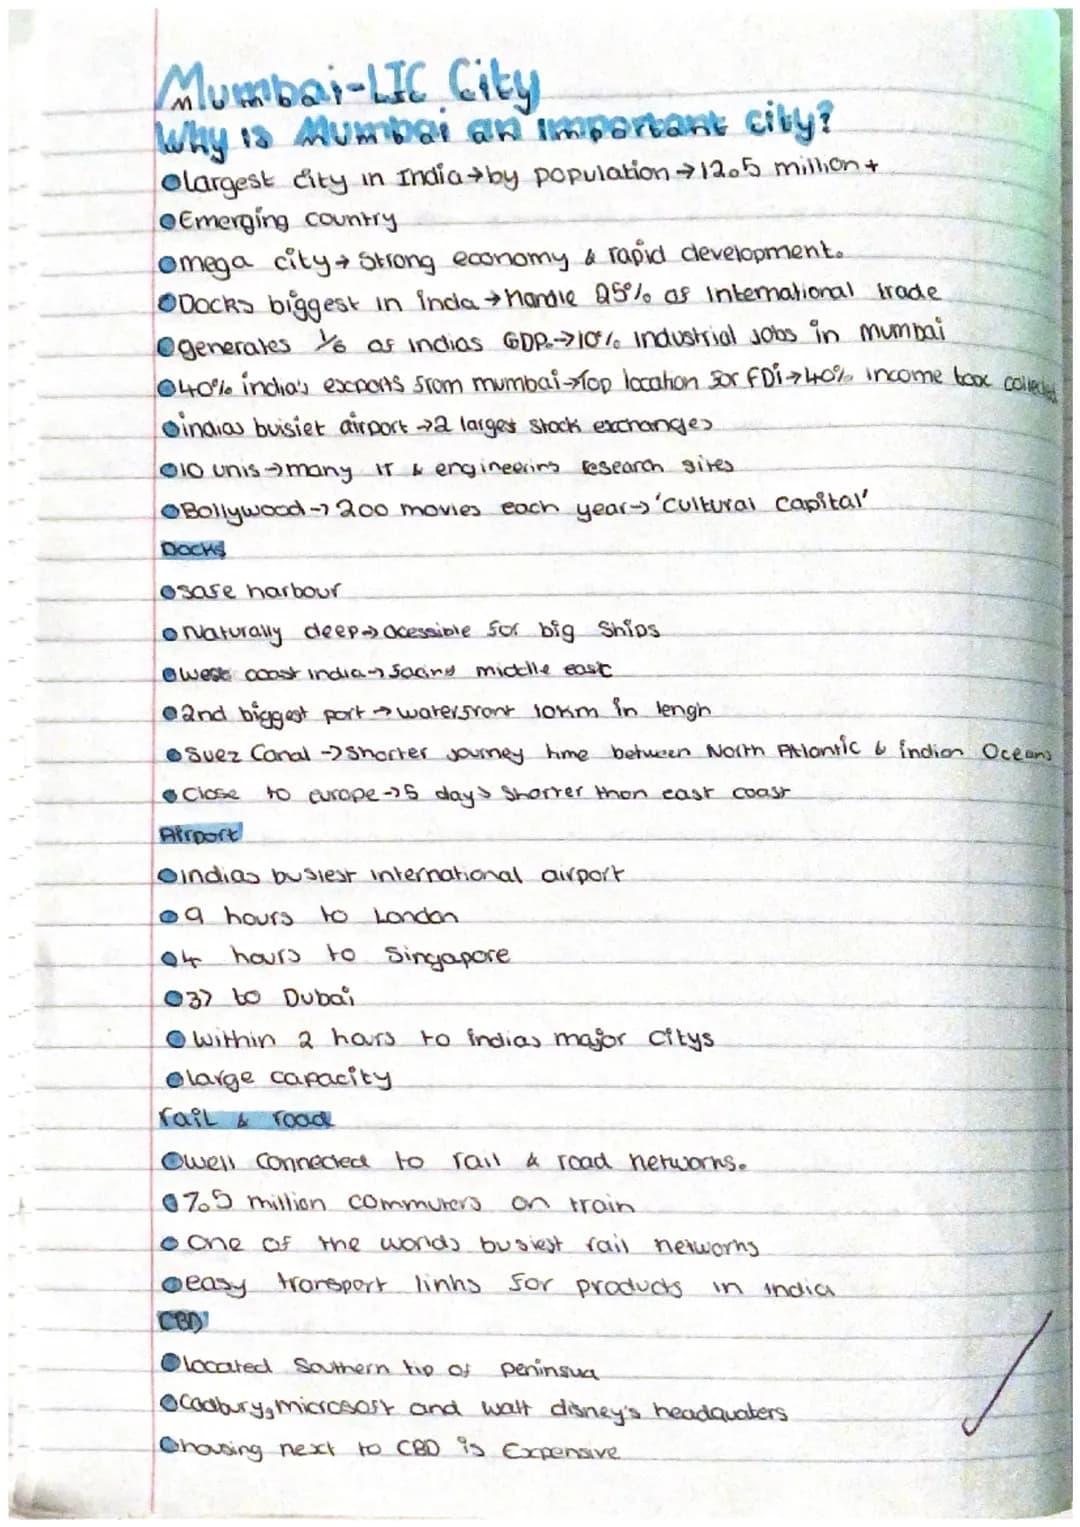 Mumbai-LIC City
Why is Mumbai an important city?
largest city in India→by population→12.5 million+
Emerging country
mega city→Strong economy & rapid development.
Docks biggest in inda→Handle 25% of International trade
generates 1/6 of indias GDP.→10% industrial jobs in mumbai
40% india's exports from mumbai→Top location for FDi→40% income tax collected
indias buisiet airport→2 larges stock exchanges
10 unis→many IT & engineering research sites
Bollywood→200 movies each year→'Cultural capital'
Docks
safe harbour
Naturally deep→acessible for big Ships
west coast india→facing middle east
2nd biggest port→waterfront 10km in lengh
Suez Canal→Shorter journey time between North Atlantic & indian Oceans
Close to europe→5 days Shorter than east coast
Airport
indias busiest international airport
9 hours to London
4 hours to Singapore
3〃 to Dubai
Within 2 hours to indias major citys
large capacity
rail & road
well connected to rail & road networks.
7.5 million commuters on train
One of the worlds busiest rail networks
easy transport links for products in india
CBD
located Southern tip of peninsua
Cadbury, microsoft and walt disney's headquaters
housing next to CBD is Expensive